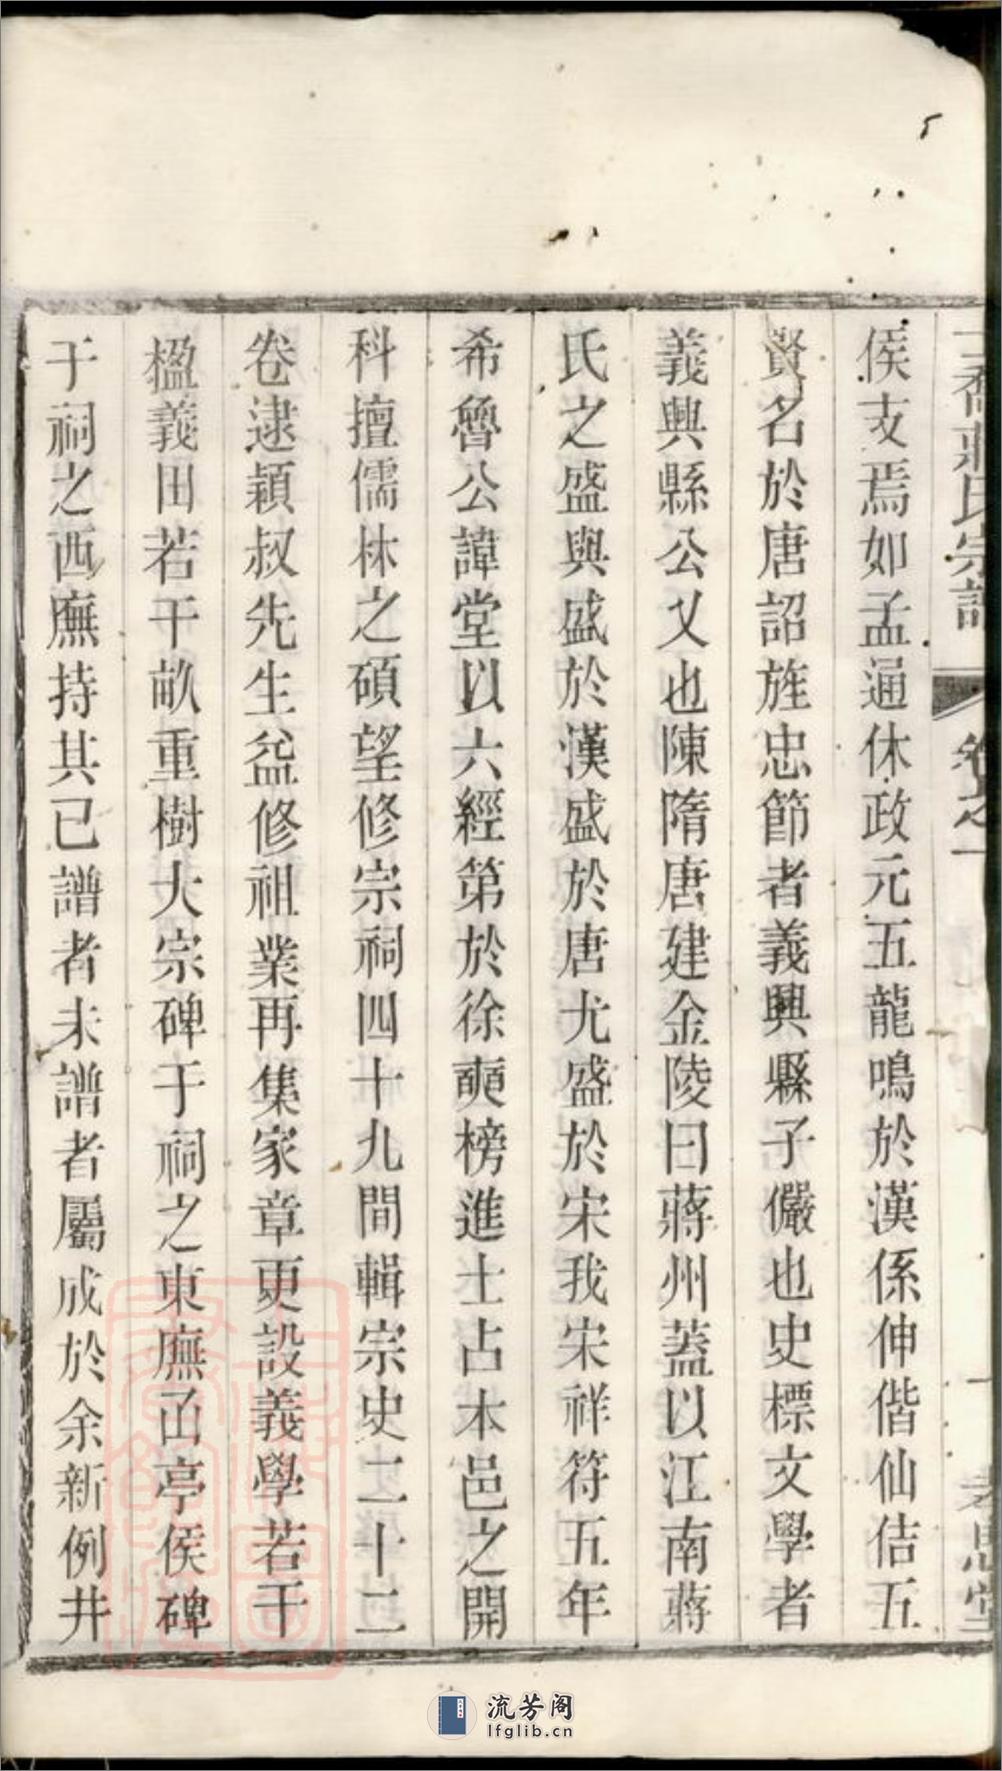 蔣氏宗譜 卷之一 一 孝思堂
侯支焉如孟通休政元五龍鳴於漢係伸偕仙佶五
賢名於唐詔旌忠節者義興縣子儼也史標文學者
義興縣公乂也陳隋唐建金陵曰蔣州蓋以江南蔣
氏之盛與盛於漢盛於唐尤盛於宋我宋祥符五年
希魯公諱堂以六經第於徐奭榜進士占本邑之開
科擅儒林之碩望修宗祠四十九間輯宗史二十二
卷逮穎叔先生益修祖業再集家章更設義學若干
楹義田若干畝重樹大宗碑于祠之東廡函亭侯碑
于祠之西廡持其已譜者未譜者屬成於余新例井
5
流芳阁
lfglib.cn